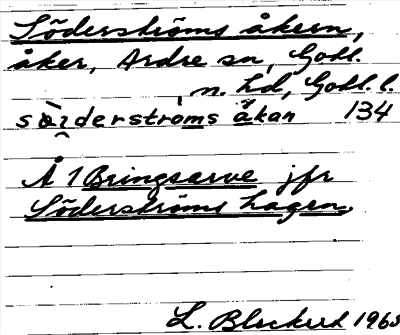 Söderströms åkern,
åker, Ardre sn, Gotl.
n. hd, Gotl. l.
134
Å 1 Bringsarve jfr
Söderströms hagen.
L. Bleckert 1960